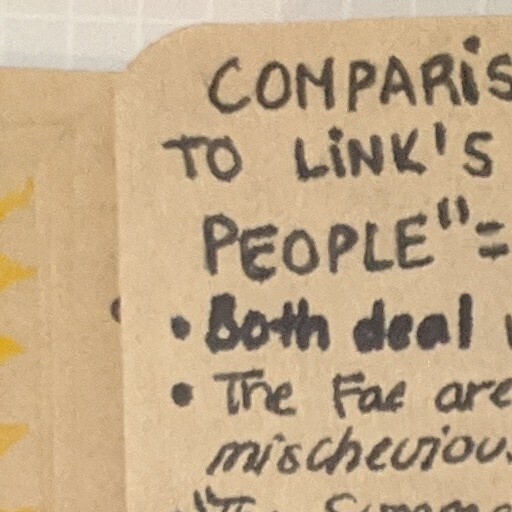 COMPARIS
TO LiNK'S
PEOPLE"=
• Both deal
• The Fae are
mischevious